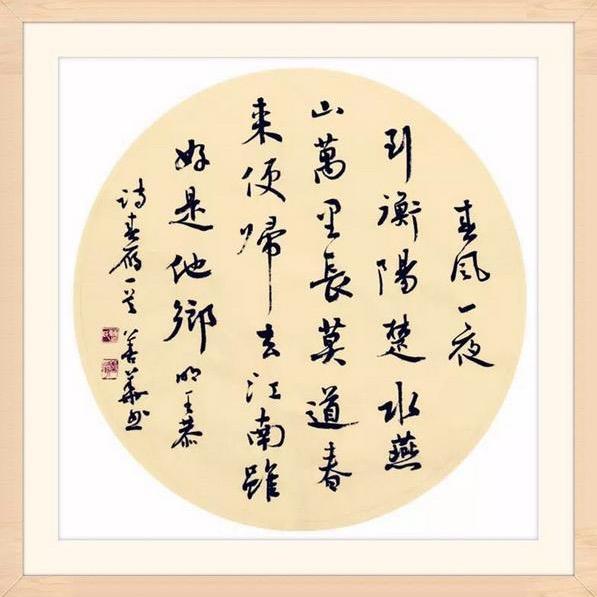 春风一夜
到衡陽楚水燕
山萬里長莫道春
来便歸去江南雖
好是他鄉明王恭
诗春雁一首善華书